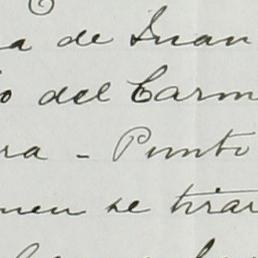 a de Juan
o del Carm
ra - Punto
men se tirar